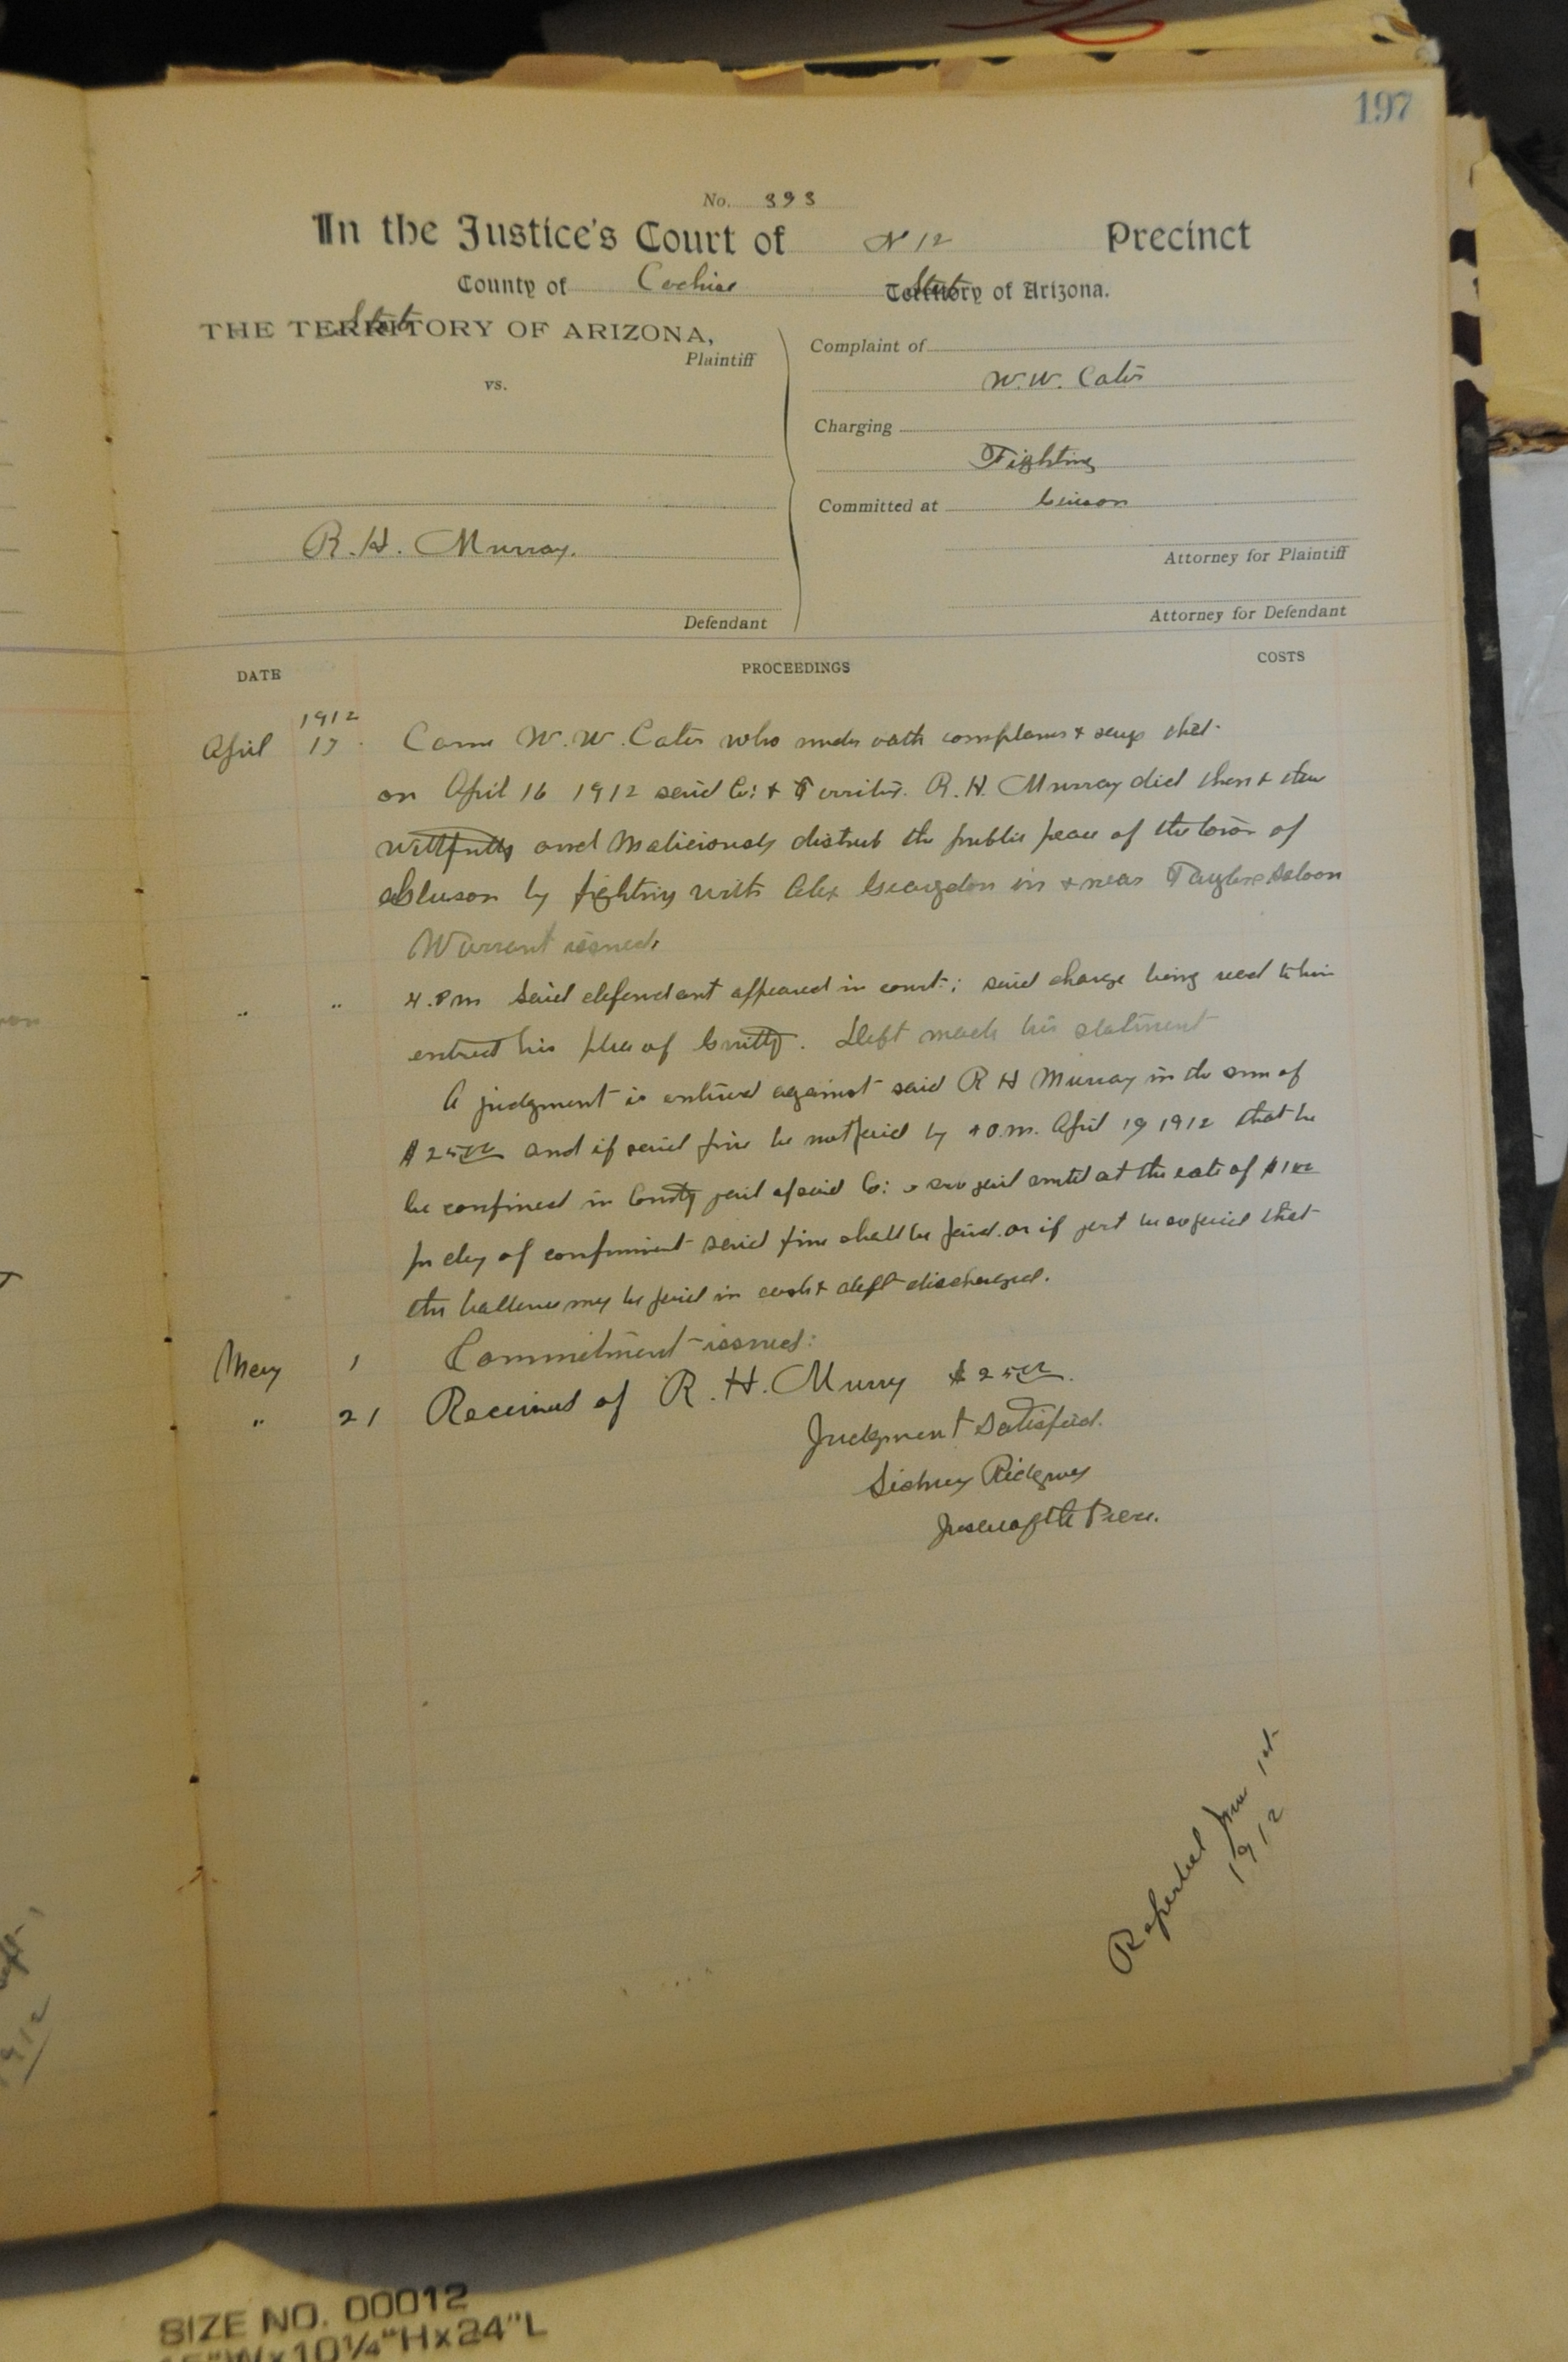 197
No. 393
In the Justice's Court of N 12 Precinct
County of Cochise State Territory of Arizona.
State
THE TERRITORY OF ARIZONA,
Plaintiff
vs.
R. H. Murray.
Defendant
Complaint of
W. W. Cates
Charging
Fighting
Committed at Benson
Attorney for Plaintiff
Attorney for Defendant
DATE PROCEEDINGS COSTS
1912
April 17 Came W. W. Cates who under oath complains & says that
on April 16 1912 said Co: & Territory. R. H. Murray did then & there
willfully and Maliciously disturb the public peace of the town of
Benson by fighting with Alex in & near Taylors Saloon
Warrant issued,
" " 4. P m Said defendant appeared in court; said charge being read to him
entered his plea of Guilty. Deft made his statement
A judgment is entered against said R H Murray in the sum of
$25 and if said fine be not paid by April 19 1912 that he
be confined in County jail of said Co: until at the rate of $1
per day of confinement said fine shall be paid. or if part be so paid that
the ballence may be paid in cash & deft discharged.
May 1 Commitment issued:
" 21 Received of R. H. Murry $25
Judgment Satisfied.
Sidney Ridgway
Justice of the Peace.
Reported June 1st
1912
SIZE NO. 00012
15"Wx10¼"Hx24"L